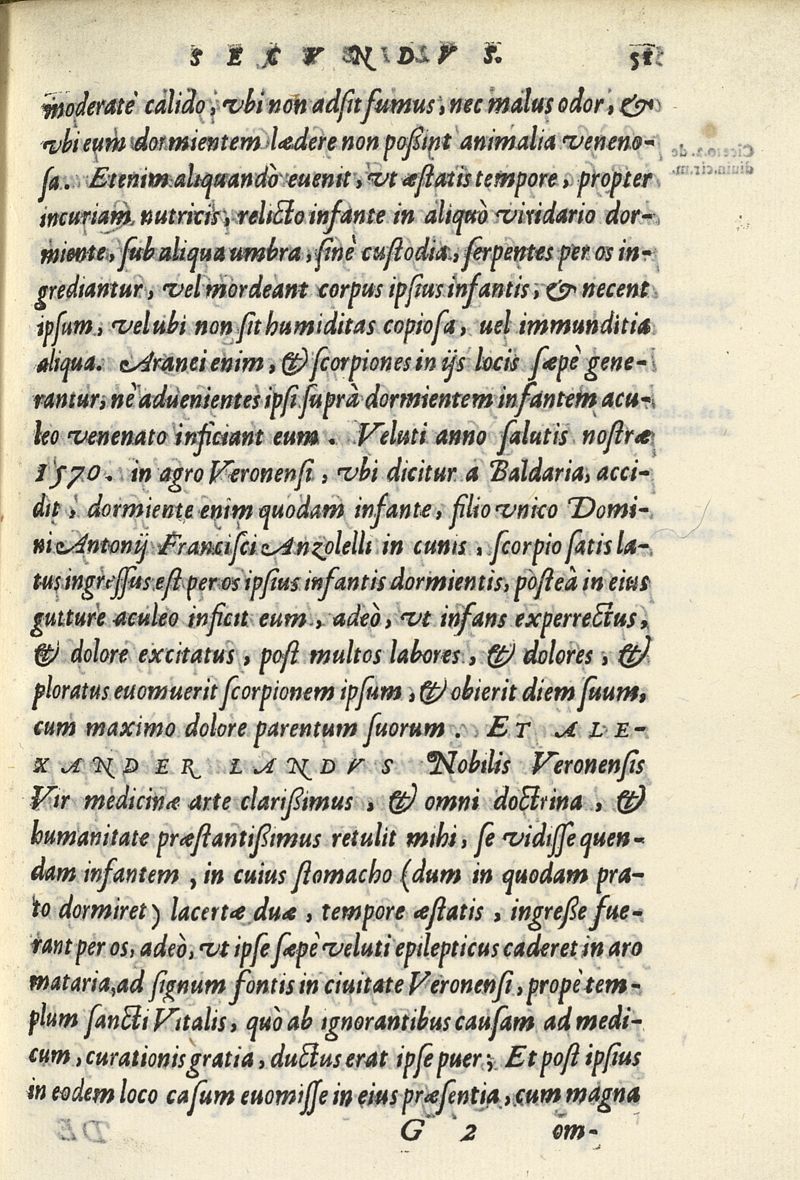 SECVNDVS. 51
moderatè calido, vbi non adſit fumus, nec malus odor, &
vbi eum dormientem lædere non poßint animalia veneno-
ſa. Etenim aliquandò euenit, vt æſtatis tempore, propter
incuriam nutricis, relicto infante in aliquò viridario dor-
miente, ſub aliqua umbra, ſinè cuſtodia, ſerpentes per os in-
grediantur, vel mordeant corpus ipſius infantis, & necent
ipſum, vel ubi non ſit humiditas copioſa, uel immunditia
aliqua. Aranei enim, & ſcorpiones in ijs locis ſæpè gene-
rantur, nè aduenientes ipſi ſuprà dormientem infantem acu-
leo venenato inficiant eum. Veluti anno ſalutis noſtræ
1570. in agro Veronenſi, vbi dicitur à Baldaria, acci-
dit, dormiente enim quodam infante, filio vnico Domi-
ni Antonij Franciſci Anzolelli in cunis, ſcorpio ſatis la-
tus ingreſſus eſt per os ipſius infantis dormientis, poſteà in eius
gutture aculeo inficit eum, adeò, vt infans experrectus,
& dolore excitatus, poſt multos labores, & dolores, &
ploratus euomuerit ſcorpionem ipſum, & obierit diem ſuum,
cum maximo dolore parentum ſuorum. ET ALE-
XANDER LANDVS Nobilis Veronenſis
Vir medicinæ arte clarißimus, & omni doctrina, &
humanitate præſtantißimus retulit mihi, ſe vidiſſe quen-
dam infantem, in cuius ſtomacho (dum in quodam pra-
to dormiret) lacertæ duæ, tempore æſtatis, ingreße fue-
rant per os, adeò, vt ipſe ſæpè veluti epilepticus caderet in aro
mataria, ad ſignum fontis in ciuitate Veronenſi, propè tem-
plum ſancti Vitalis, quò ab ignorantibus cauſam ad medi-
cum, curationis gratia, ductus erat ipſe puer; Et poſt ipſius
in eodem loco caſum euomiſſe in eius præſentia, cum magna
G 2 om-